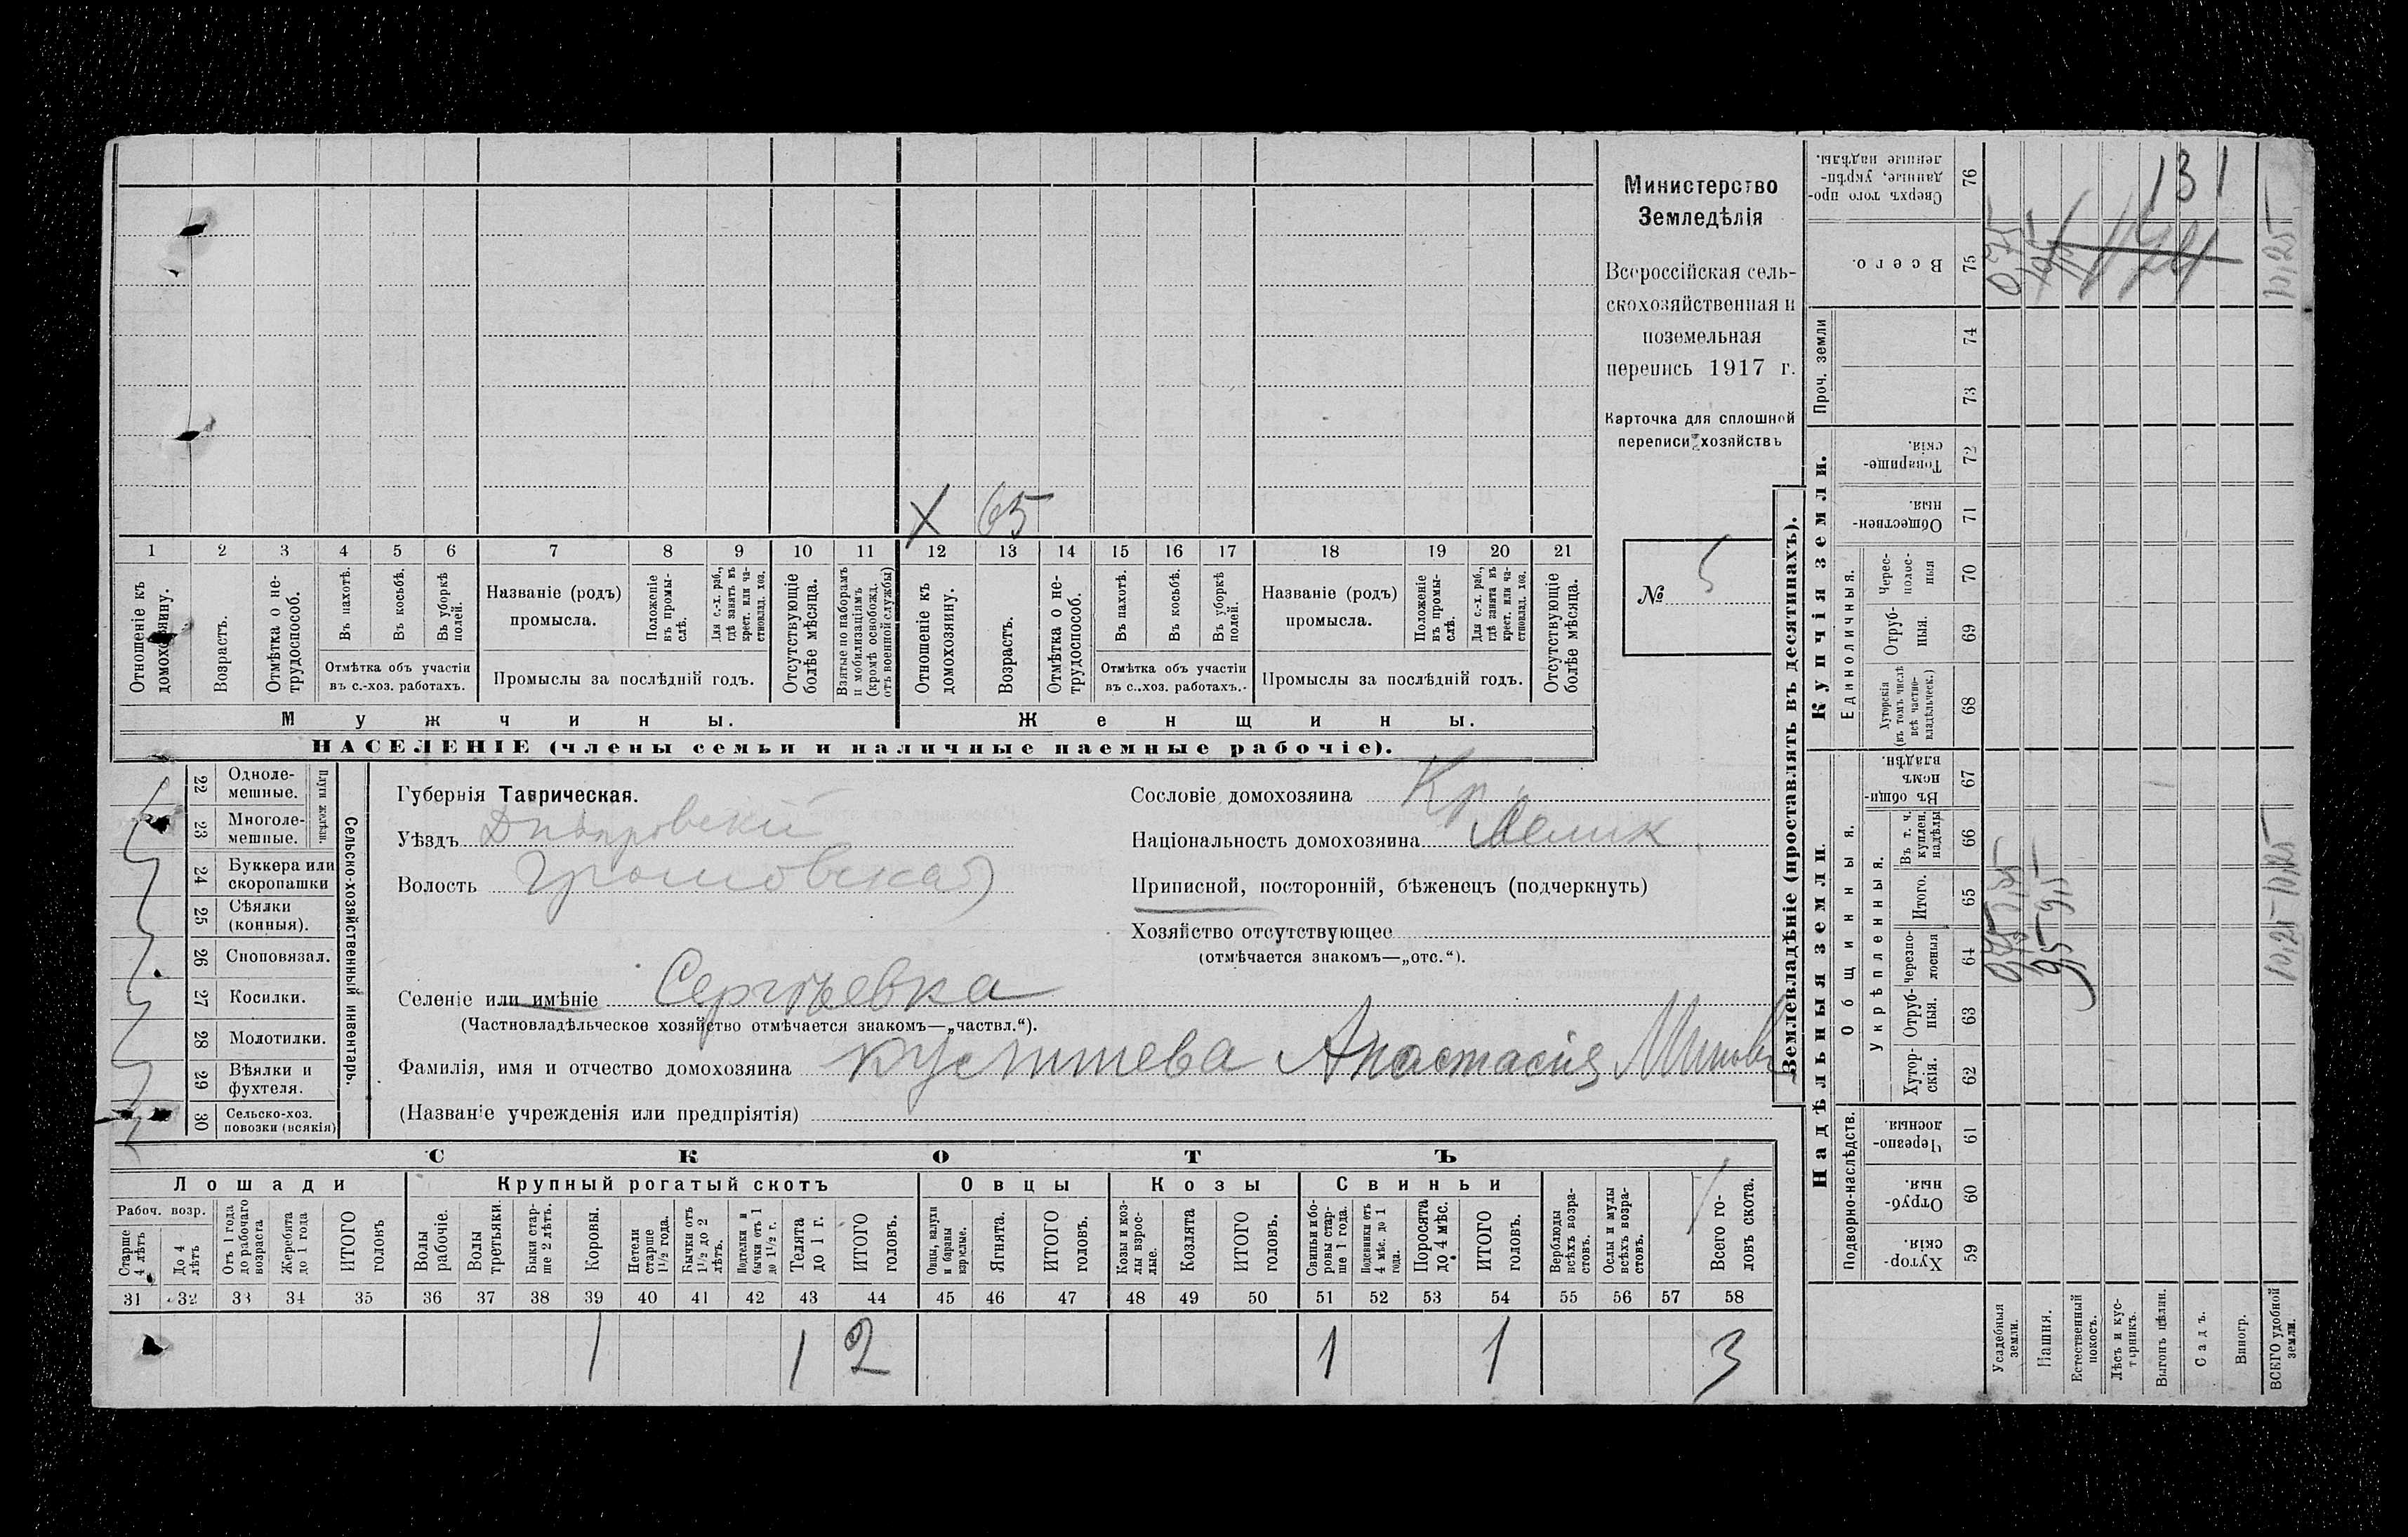 Министерство
Земледѣлія
Всероссійская сель-
скохозяйственная и
поземельная
перепись 1917 г.
Карточка для сплошной
переписи хозяйствъ
№ 5
Х 65
1 2 3 4 5 6 7 8 9 10 11 12 13 14 15 16 17 18 19 20 21
Отношеніе къ домохозяину.
Возрастъ.
Отмѣтка о не-трудоспособ.
Въ пахотѣ.
Въ косьбѣ.
Въ уборкѣ полей.
Отмѣтка объ участіи въ с.-хоз. работахъ.
Названіе (родъ) промысла.
Положеніе въ промы-слѣ.
Для с.-х. раб., гдѣ занятъ въ крест. или ча-стновлад. хоз.
Промыслы за послѣдній годъ.
Отсутствующіе болѣе мѣсяца.
Взятые по наборамъ и мобилизаціямъ (кромѣ освобожд. отъ военной службы)
Отношеніе къ домохозяину.
Возрастъ.
Отмѣтка о не-трудоспособ.
Въ пахотѣ.
Въ косьбѣ.
Въ уборкѣ полей.
Отмѣтка объ участіи въ с.-хоз. работахъ.
Названіе (родъ) промысла.
Положеніе въ промы-слѣ.
Для с.-х. раб., гдѣ занята въ крест. или ча-стновлад. хоз.
Промыслы за послѣдній годъ.
Отсутствующіе болѣе мѣсяца.
Мужчины.
Женщины.
НАСЕЛЕНІЕ (члены семьи и наличные наемные рабочіе).
22 Одноле-мешные.
23 Многоле-мешные.
Плуги желѣзн.
24 Буккера или скоропашки
25 Сѣялки (конныя).
26 Сноповязал.
27 Косилки.
28 Молотилки.
29 Вѣялки и фухтеля.
30 Сельско-хоз. повозки (всякія)
Сельско-хозяйственный инвентарь.
Губернія Таврическая.
Уѣздъ Днѣпровскій
Волость Громовская
Селеніе или имѣніе Сергѣевка
(Частновладѣльческое хозяйство отмѣчается знакомъ—„частвл.“).
Фамилія, имя и отчество домохозяина Анастасія
(Названіе учрежденія или предпріятія)
Сословіе домохозяина Кр.
Національность домохозяина
Приписной, посторонній, бѣженецъ (подчеркнуть)
Хозяйство отсутствующее
(отмѣчается знакомъ—„отс.“).
СКОТЪ
Лошади
Крупный рогатый скотъ
Овцы
Козы
Свиньи
Рабоч. возр.
Старше 4 лѣтъ
До 4 лѣтъ
Отъ 1 года до рабочаго возраста
Жеребята до 1 года
ИТОГО головъ
Волы рабочіе.
Волы третьяки.
Быки стар-ше 2 лѣтъ.
Коровы.
Нетели старше 1½ года.
Бычки отъ 1½ до 2 лѣтъ.
Подтелки и бычки отъ 1 до 1½ г.
Телята до 1 г.
ИТОГО головъ.
Овцы, валухи и бараны взрослые.
Ягнята.
ИТОГО головъ.
Козы и коз-лы взрос-лые.
Козлята
ИТОГО головъ.
Свиньи и бо-ровы стар-ше 1 года.
Подсвинки отъ 4 мѣс. до 1 года.
Поросята до 4 мѣс.
ИТОГО головъ.
Верблюды всѣхъ возра-стовъ.
Ослы и мулы всѣхъ возра-стовъ.
Всего го-ловъ скота.
31 32 33 34 35 36 37 38 39 40 41 42 43 44 45 46 47 48 49 50 51 52 53 54 55 56 57 58
1 1 2 1 1 3
Землевладѣніе (проставлять въ десятинахъ).
Надѣльныя земли.
Подворно-наслѣдств.
Хутор-скія. 59
Отруб-ныя. 60
Черезпо-лосныя. 61
Общинныя.
Укрѣпленныя.
Хутор-скія. 62
Отруб-ныя. 63
Черезпо-лосныя 64
Итого. 65
Въ т. ч. куплен. надѣлы 66
Въ общин-номъ владѣн. 67
Купчія земли.
Единоличныя.
Хуторскія (въ томъ числѣ всѣ частно-владѣльческ.) 68
Отруб-ныя. 69
Черес-полос-ныя 70
Обществен-ныя. 71
Товарище-скія. 72
Проч. земли
73
74
Всего. 75
Сверхъ того про-данные, укрѣп-ленные надѣлы. 76
Усадебныя земли.
Пашня.
Естественный покосъ.
Лѣсъ и кус-тарникъ.
Выгонъ цѣлин.
Садъ.
Виногр.
ВСЕГО удобной земли.
0,75
9,5 9,5
10,25 10,25
10,25
131